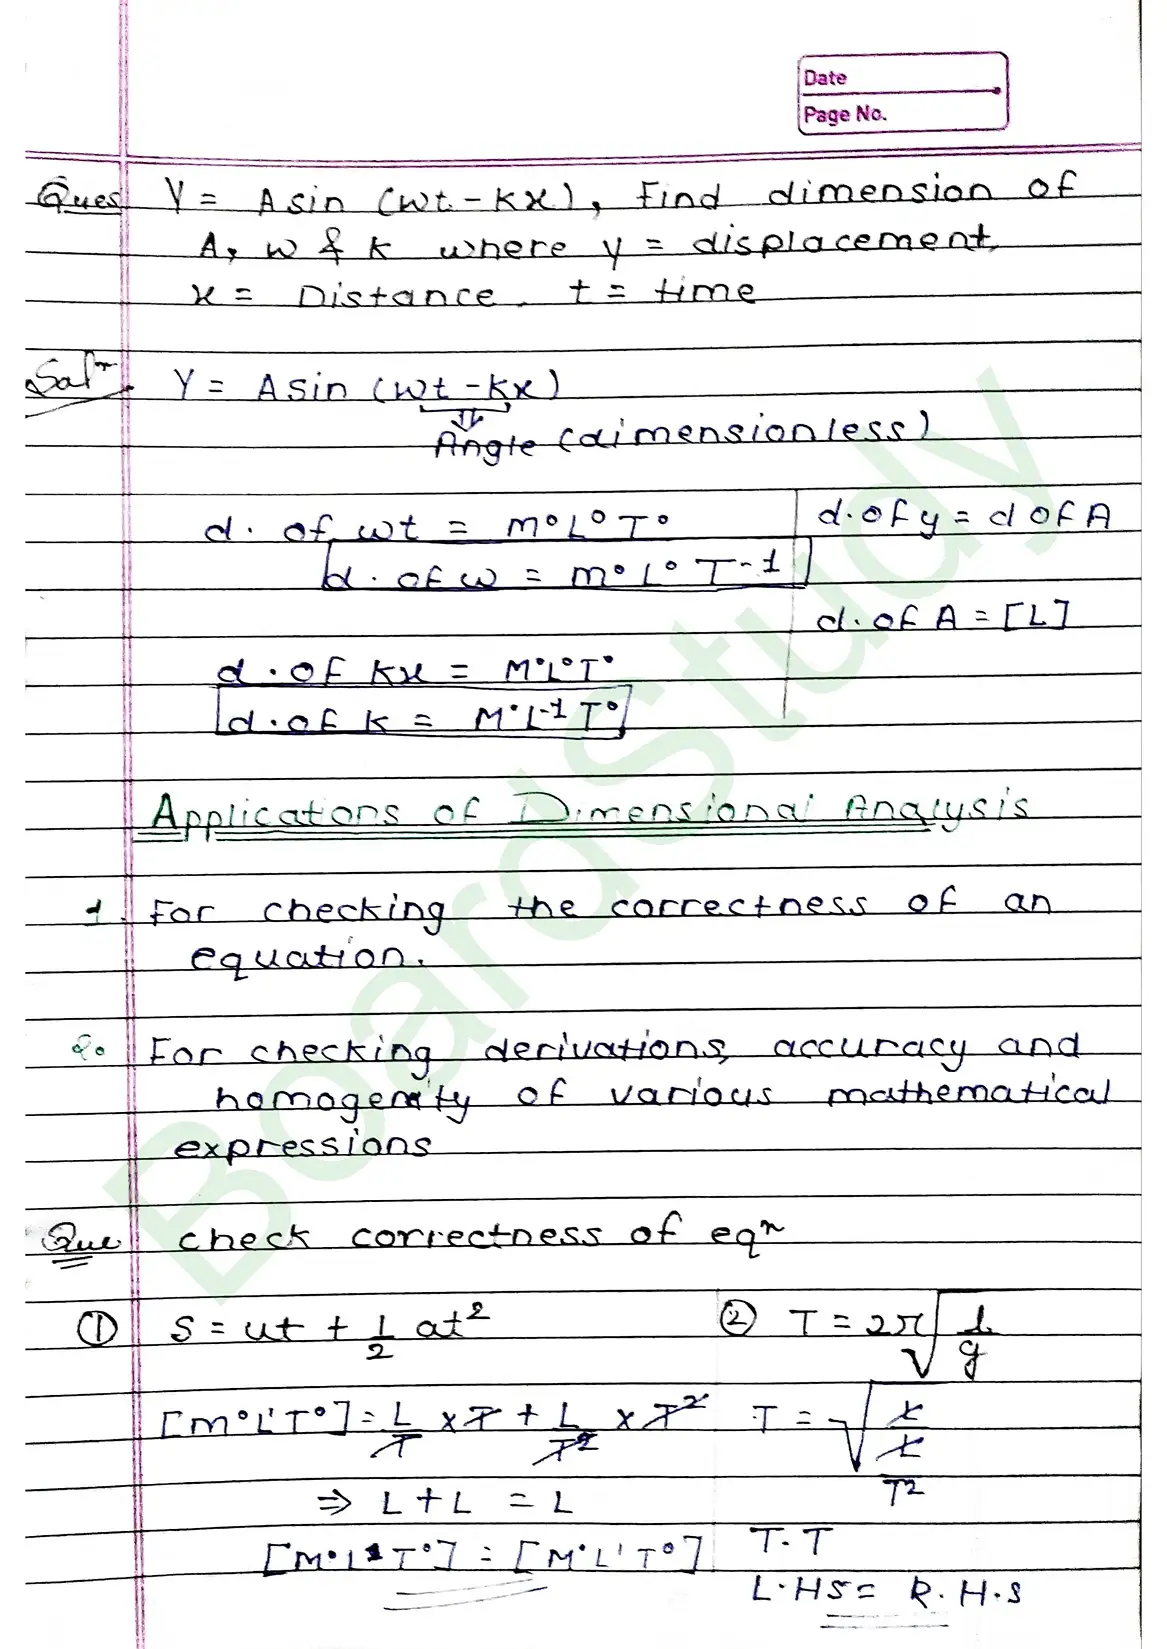 Date
Page No.
Ques Y = A sin (wt - kx), Find dimension of
A, w & k where y = displacement,
x = Distance, t = time
Solⁿ Y = A sin (wt - kx)
⇓
Angle (dimensionless)
d. of wt = M⁰L⁰T⁰
d. of w = M⁰L⁰T⁻¹
d. of y = d of A
d. of A = [L]
d. of kx = M⁰L⁰T⁰
d. of k = M⁰L⁻¹T⁰
Applications of Dimensional Analysis
1. For checking the correctness of an
equation.
2. For checking derivations, accuracy and
homogenity of various mathematical
expressions
Que check correctness of eqⁿ
① S = ut + 1/2 at²
[M⁰L¹T⁰] = L/T × T + L/T² × T²
⇒ L + L = L
[M⁰L¹T⁰] = [M⁰L¹T⁰]
② T = 2π√(l/g)
T = √(L/(L/T²))
T. T
L.HS = R.H.S
BoardStudy